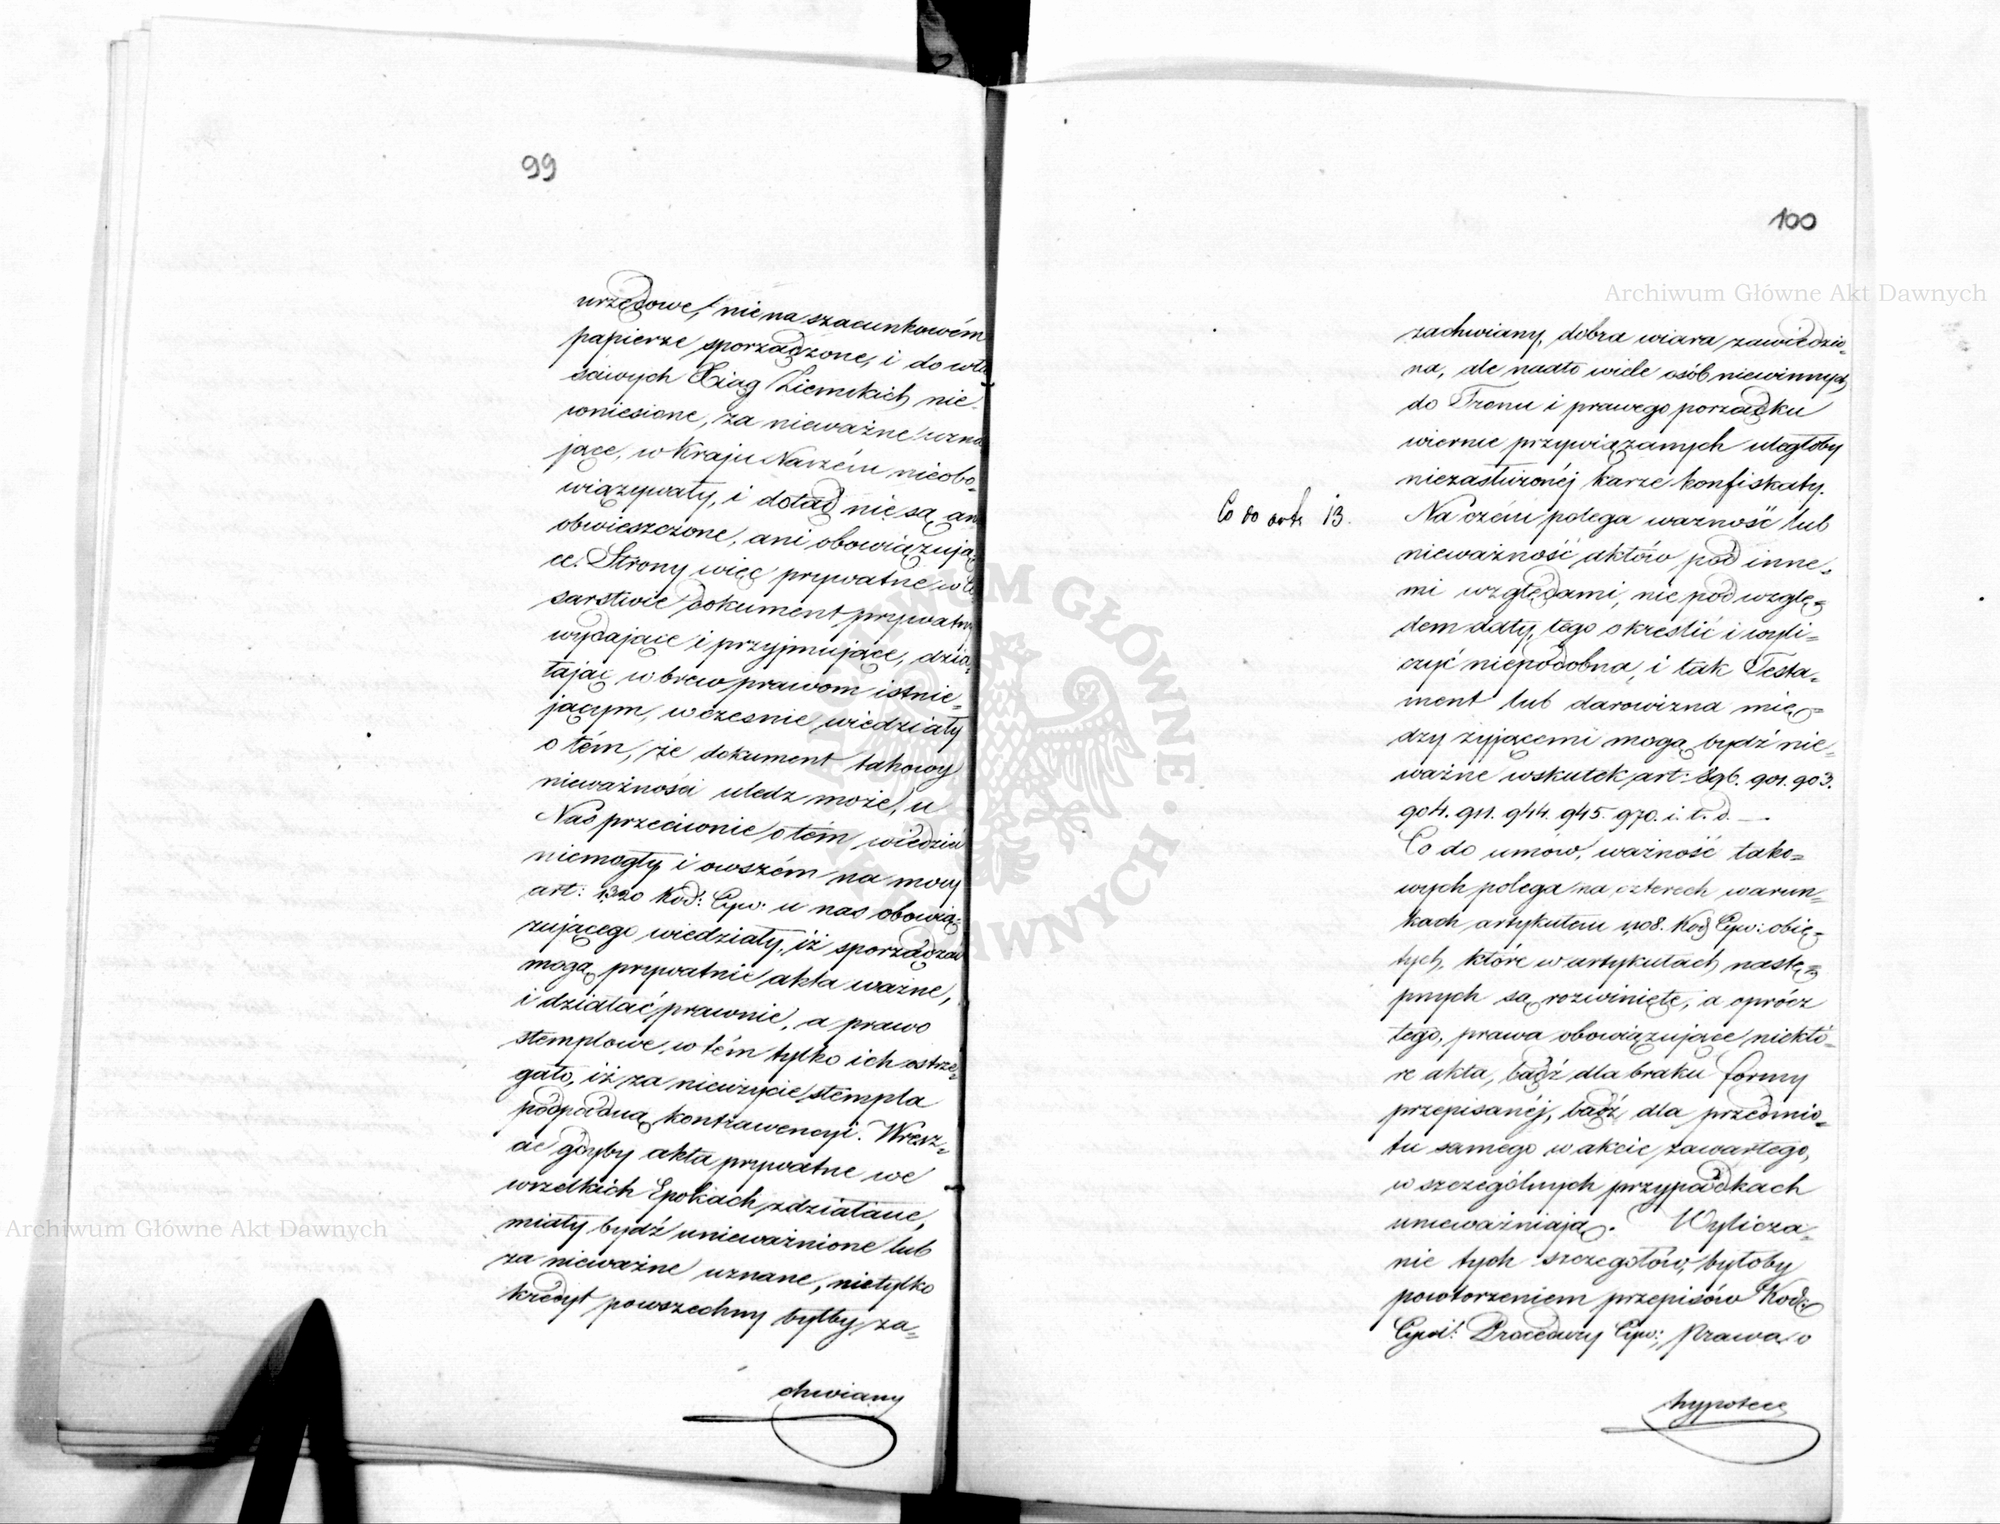 99
urzędowe, nie na szacunkowém
papierze sporządzone, i do wła
ściwych Xiąg Ziemskich nie
wniesione, za nieważne uzna
jące, w Kraju Naszém nieobo=
wiązywały, i dotąd nie są an
obwieszczone, ani obowiązują
ce. Strony więc prywatne w Ce
sarstwie dokument prywatn
wydające i przyjmujące, dzia=
łając wbrew prawom istnie=
jącym, wcześnie wiedziały
o tém, że dokument takowy
nieważności uledz może, u
Nas przeciwnie o tém wiedzie
niemogły i owszém na mocy
art: 1320 Kod: Cyw: u nas obowią=
zującego wiedziały, iż sporządzać
mogą prywatnie akta ważne,
i działać prawnie, a prawo
stemplowe w tém tylko ich ostrze=
gało, iż za nieużycie stempla
podpadną kontrawencyi. Wresz=
cie gdyby akta prywatne we
wszelkich Epokach zdziałane,
miały bydź unieważnione lub
za nieważne uznane, nietylko
kredyt powszechny byłby za=
chwiany
100
Archiwum Główne Akt Dawnych
zachwiany, dobra wiara zawiedzio=
na, ale nadto wiele osób niewinnych,
do Tronu i prawego porządku
wiernie przywiązanych uległoby
niezasłużonéj karze konfiskaty.
Co do art: 13.
Na czém polega ważność lub
nieważność aktów pod inne=
mi względami, nie pod wzglę=
dem daty, tego określić i wyli=
czyć niepodobna, i tak Testa=
ment lub darowizna mię=
dzy żyjącemi mogą bydź nie=
ważne wskutek art: 896. 901. 903.
904. 911. 944. 945. 970. i. t. d. —
Co do umów, ważność tako=
wych polega na czterech warun=
kach artykułem 1108. Kod Cyw: obję=
tych, które w artykułach nastę=
pnych są rozwinięte, a oprócz
tego, prawa obowiązujące niektó=
re akta, bądź dla braku formy
przepisanéj, bądź dla przedmio=
tu samego w akcie zawartego,
w szczególnych przypadkach
unieważniają. Wylicza=
nie tych szczegółów, byłoby
powtorzeniem przepisów Kod:
Cywil: Procedury Cyw:, Prawa o
hypotece
ARCHIWUM GŁÓWNE AKT DAWNYCH
Archiwum Główne Akt Dawnych